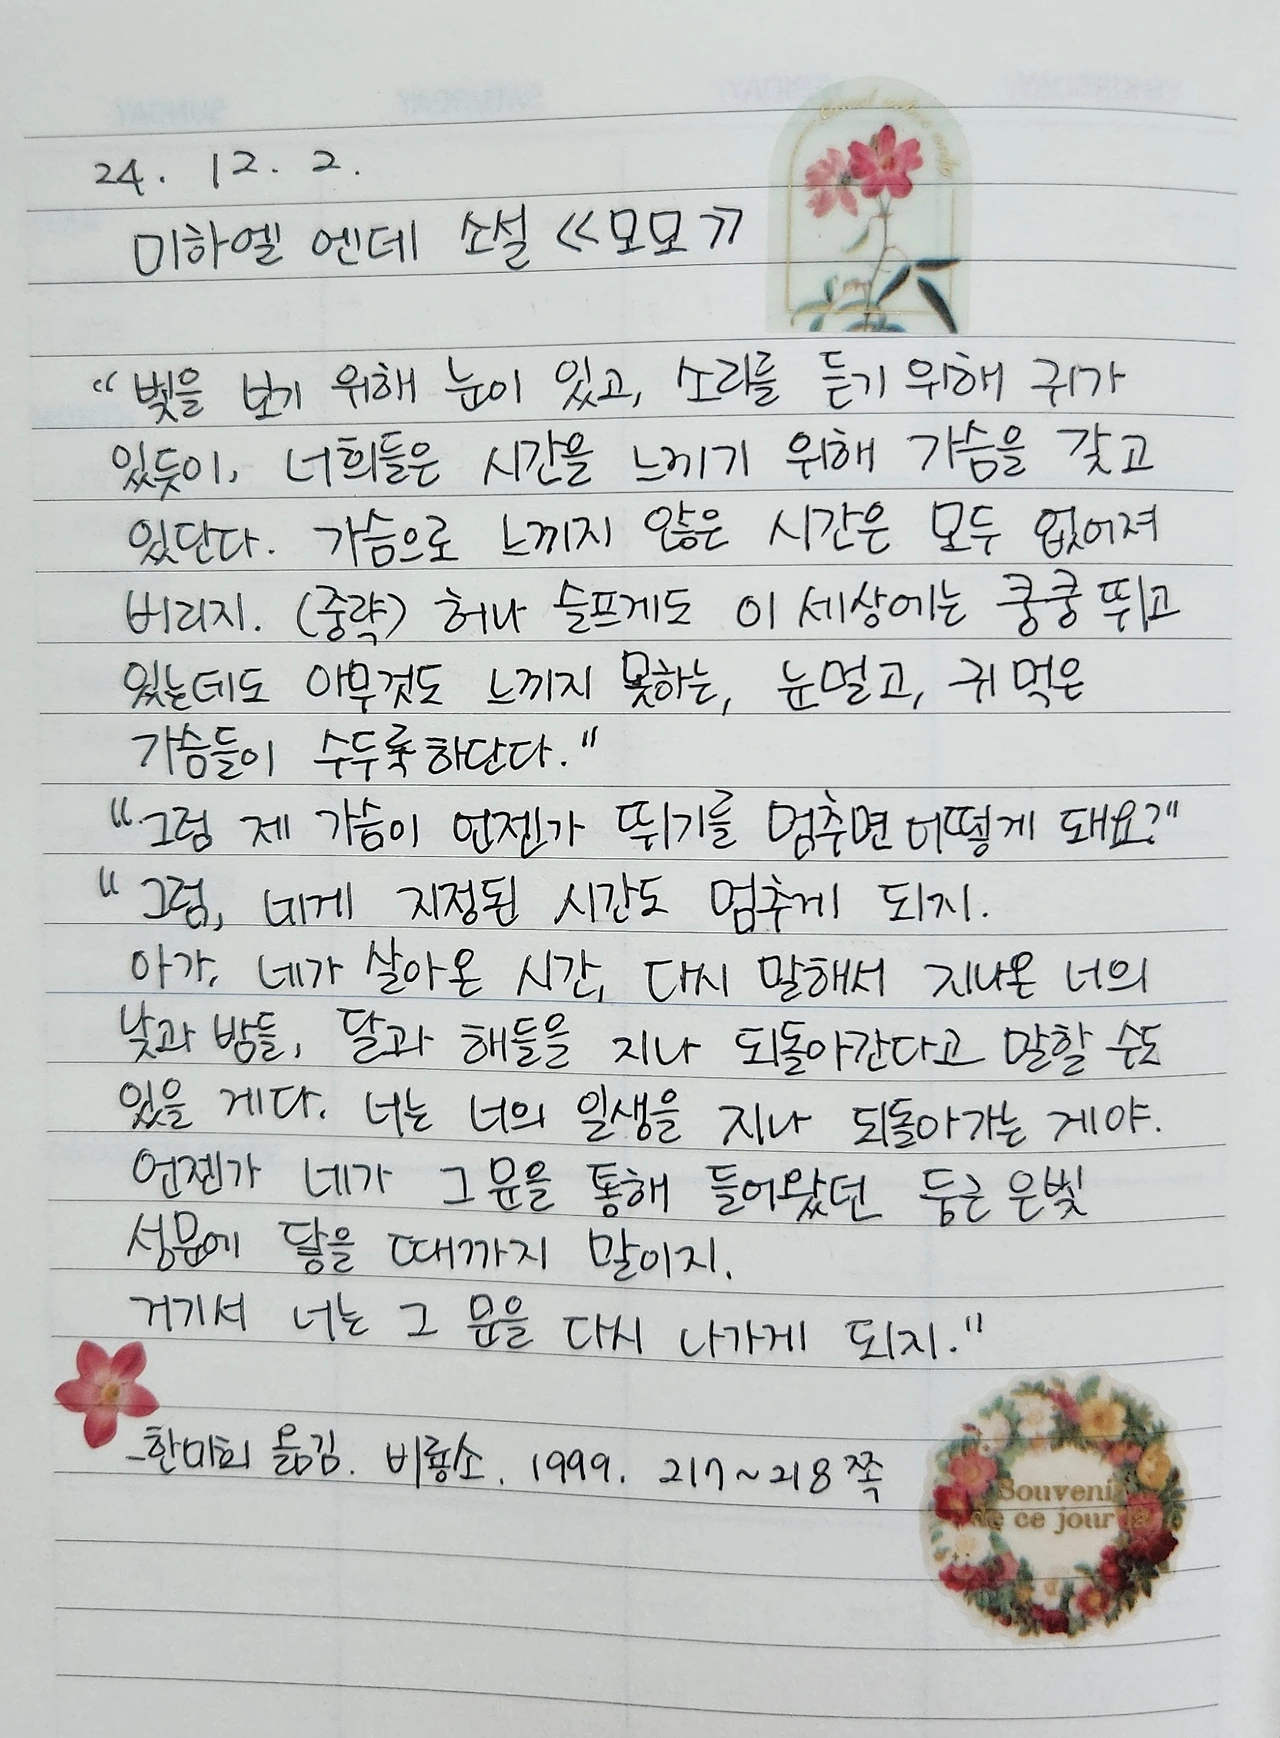 24. 12. 2.
미하엘 엔데 소설 《모모》
"빛을 보기 위해 눈이 있고, 소리를 듣기 위해 귀가
있듯이, 너희들은 시간을 느끼기 위해 가슴을 갖고
있단다. 가슴으로 느끼지 않은 시간은 모두 없어져
버리지. (중략) 허나 슬프게도 이 세상에는 쿵쿵 뛰고
있는데도 아무것도 느끼지 못하는, 눈멀고, 귀 먹은
가슴들이 수두룩하단다."
"그럼 제 가슴이 언젠가 뛰기를 멈추면 어떻게 돼요?"
"그럼, 네게 지정된 시간도 멈추게 되지.
아가, 네가 살아온 시간, 다시 말해서 지나온 너의
낮과 밤들, 달과 해들을 지나 되돌아간다고 말할 수도
있을 게다. 너는 너의 일생을 지나 되돌아가는 게야.
언젠가 네가 그 문을 통해 들어왔던 둥근 은빛
성문에 닿을 때까지 말이지.
거기서 너는 그 문을 다시 나가게 되지."
-한미희 옮김. 비룡소. 1999. 217~218쪽
Souvenir
de ce jour